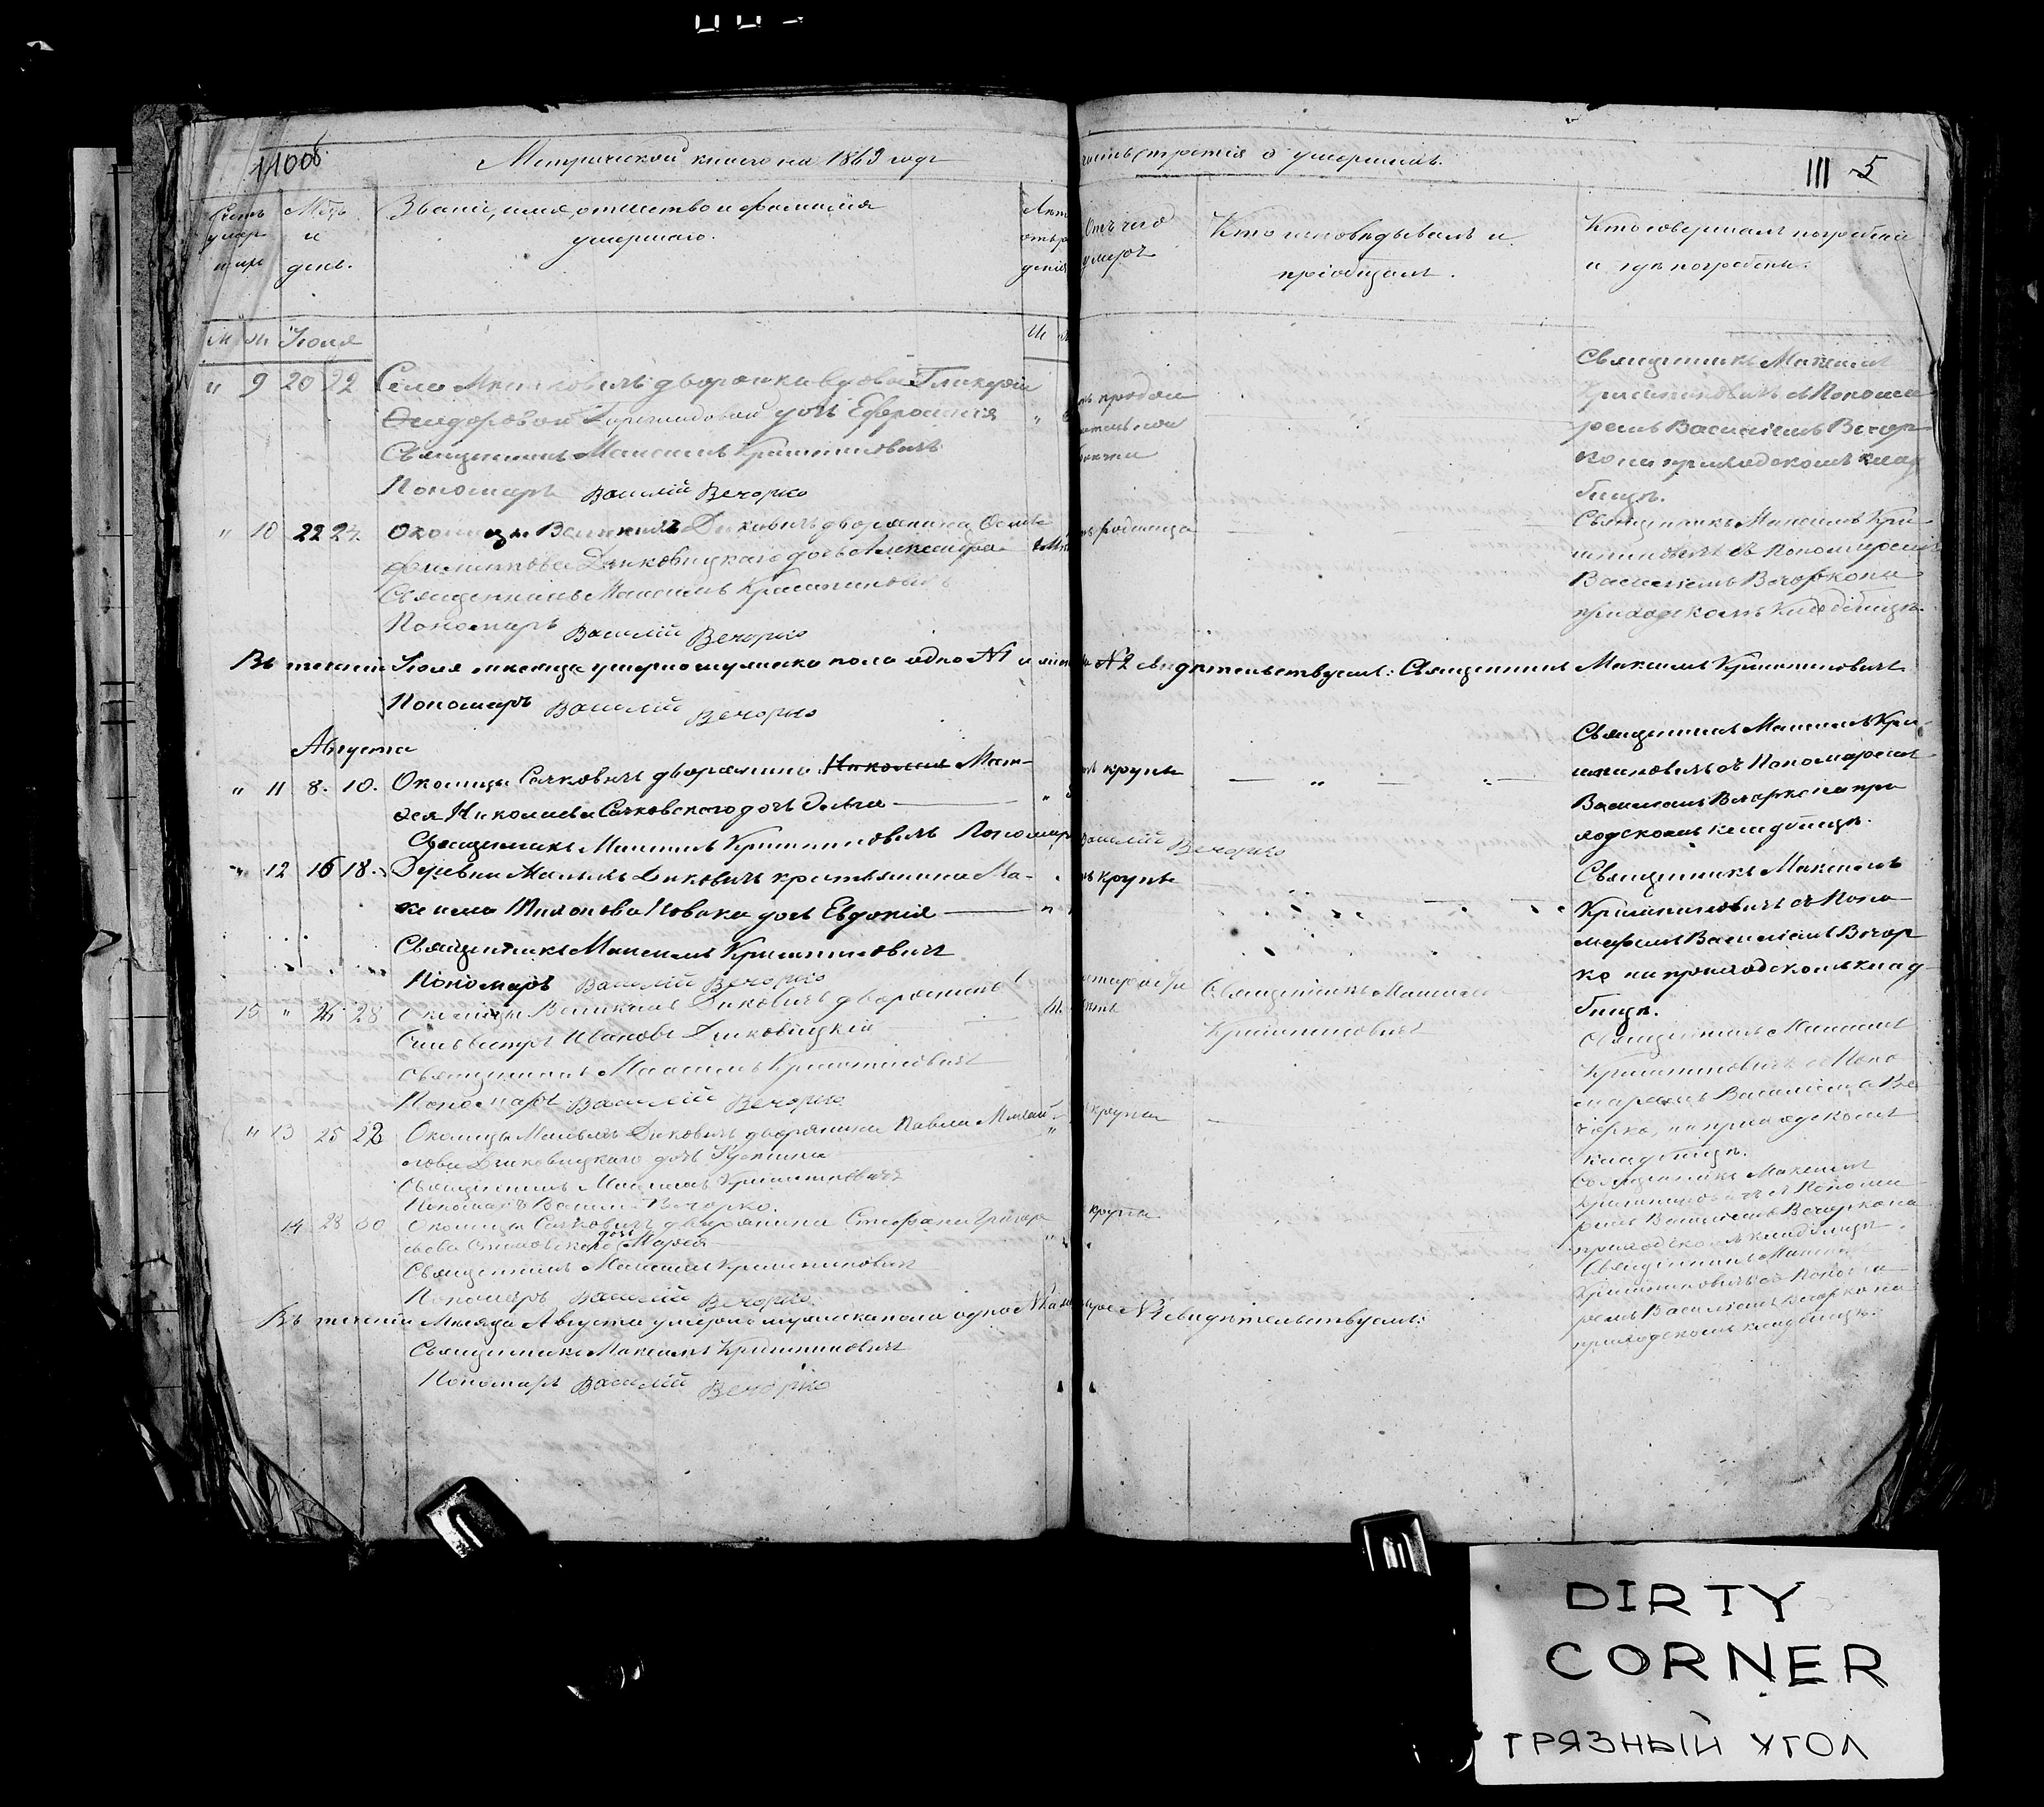 110об.
Метрической книги на 1869 годъ
часть третія о умершихъ.
III 5
Счетъ умер шихъ
Мѣць и день.
Званіе, имя, отчество и фамилія
умершаго.
Отъ чего
умеръ
Кто исповѣдывалъ и
пріобщалъ.
Кто совершалъ погребеніе
и гдѣ погребены.
м ж Іюля
" 9 20 22 Села дворянки вдовы Гликеріи
Ѳеодоровой дочь Ефросинія
Священникъ Максимъ Криштиновичъ
Пономарь Василій Вечорко
Священникъ Максимъ
Криштиновичъ съ Понома
ремъ Василіемъ Вечор
ко на приходскомъ клад
бищѣ.
" 10 22 24 Околицы Великихъ Диковичъ дворянина
Филиппова Диковицкаго дочь Александра
Священникъ Максимъ Криштиновичъ
Пономарь Василій Вечорко
родимца
Священникъ Максимъ Кри
штиновичъ съ Пономаремъ
Василіемъ Вечорко на
приходскомъ кладбищѣ.
Въ теченіи Іюля мѣсяца умерло мужеска пола одно №1 и женска №2 свидѣтельствуемъ: Священникъ Максимъ Криштиновичъ
Пономарь Василій Вечорко
Августа
" 11 8. 10. Околицы Сачковичъ дворянина Николая Мат-
ѳея Николаева Сачковскаго дочь
Священникъ Максимъ Криштиновичъ Пономарь Василій Вечорко
крупы
Священникъ Максимъ Кри-
штиновичъ съ Пономаремъ
Василіемъ Вечорко на при
ходскомъ кладбищѣ.
" 12 16 18. Деревни Малыхъ Диковичъ крестьянина Ма-
ксима Новака дочь Евдокія
Священникъ Максимъ Криштиновичъ
Пономарь Василій Вечорко
крупы
Священникъ Максимъ
Криштиновичъ съ Поно-
маремъ Василіемъ Вечор
ко на приходскомъ клад-
бищѣ.
15 " 26 28 Околицы Великихъ Диковичъ дворянинъ
Сильвестръ Ивановъ Диковицкій
Священникъ Максимъ Криштиновичъ
Пономарь Василій Вечорко
Священникъ Максимъ
Криштиновичъ
Священникъ Максимъ
Криштиновичъ съ Поно
маремъ Василіемъ Ве
чорко, на приходскомъ
кладбищѣ.
" 13 25 22 Околицы Малыхъ Диковичъ дворянина Павла Михай-
лова Диковицкаго дочь Іустина
Священникъ Максимъ Криштиновичъ
Пономарь Василій Вечорко.
крупы
Священникъ Максимъ
Криштиновичъ съ Понома
ремъ Василіемъ Вечорко на
приходскомъ кладбищѣ.
14 28 30 Околицы Сачковичъ дворянина Стефана Григорь
ева дочь Марія
Священникъ Максимъ Криштиновичъ
Пономарь Василій Вечорко.
крупы
Священникъ Максимъ
Криштиновичъ съ Понома
ремъ Василіемъ Вечорко на
приходскомъ кладбищѣ.
Въ теченіи Мѣсяца Августа умерло мужеска пола одно №1 №4 свидѣтельствуемъ:
Священникъ Максимъ Криштиновичъ
Пономарь Василій Вечорко
DIRTY
CORNER
ГРЯЗНЫЙ УГОЛ